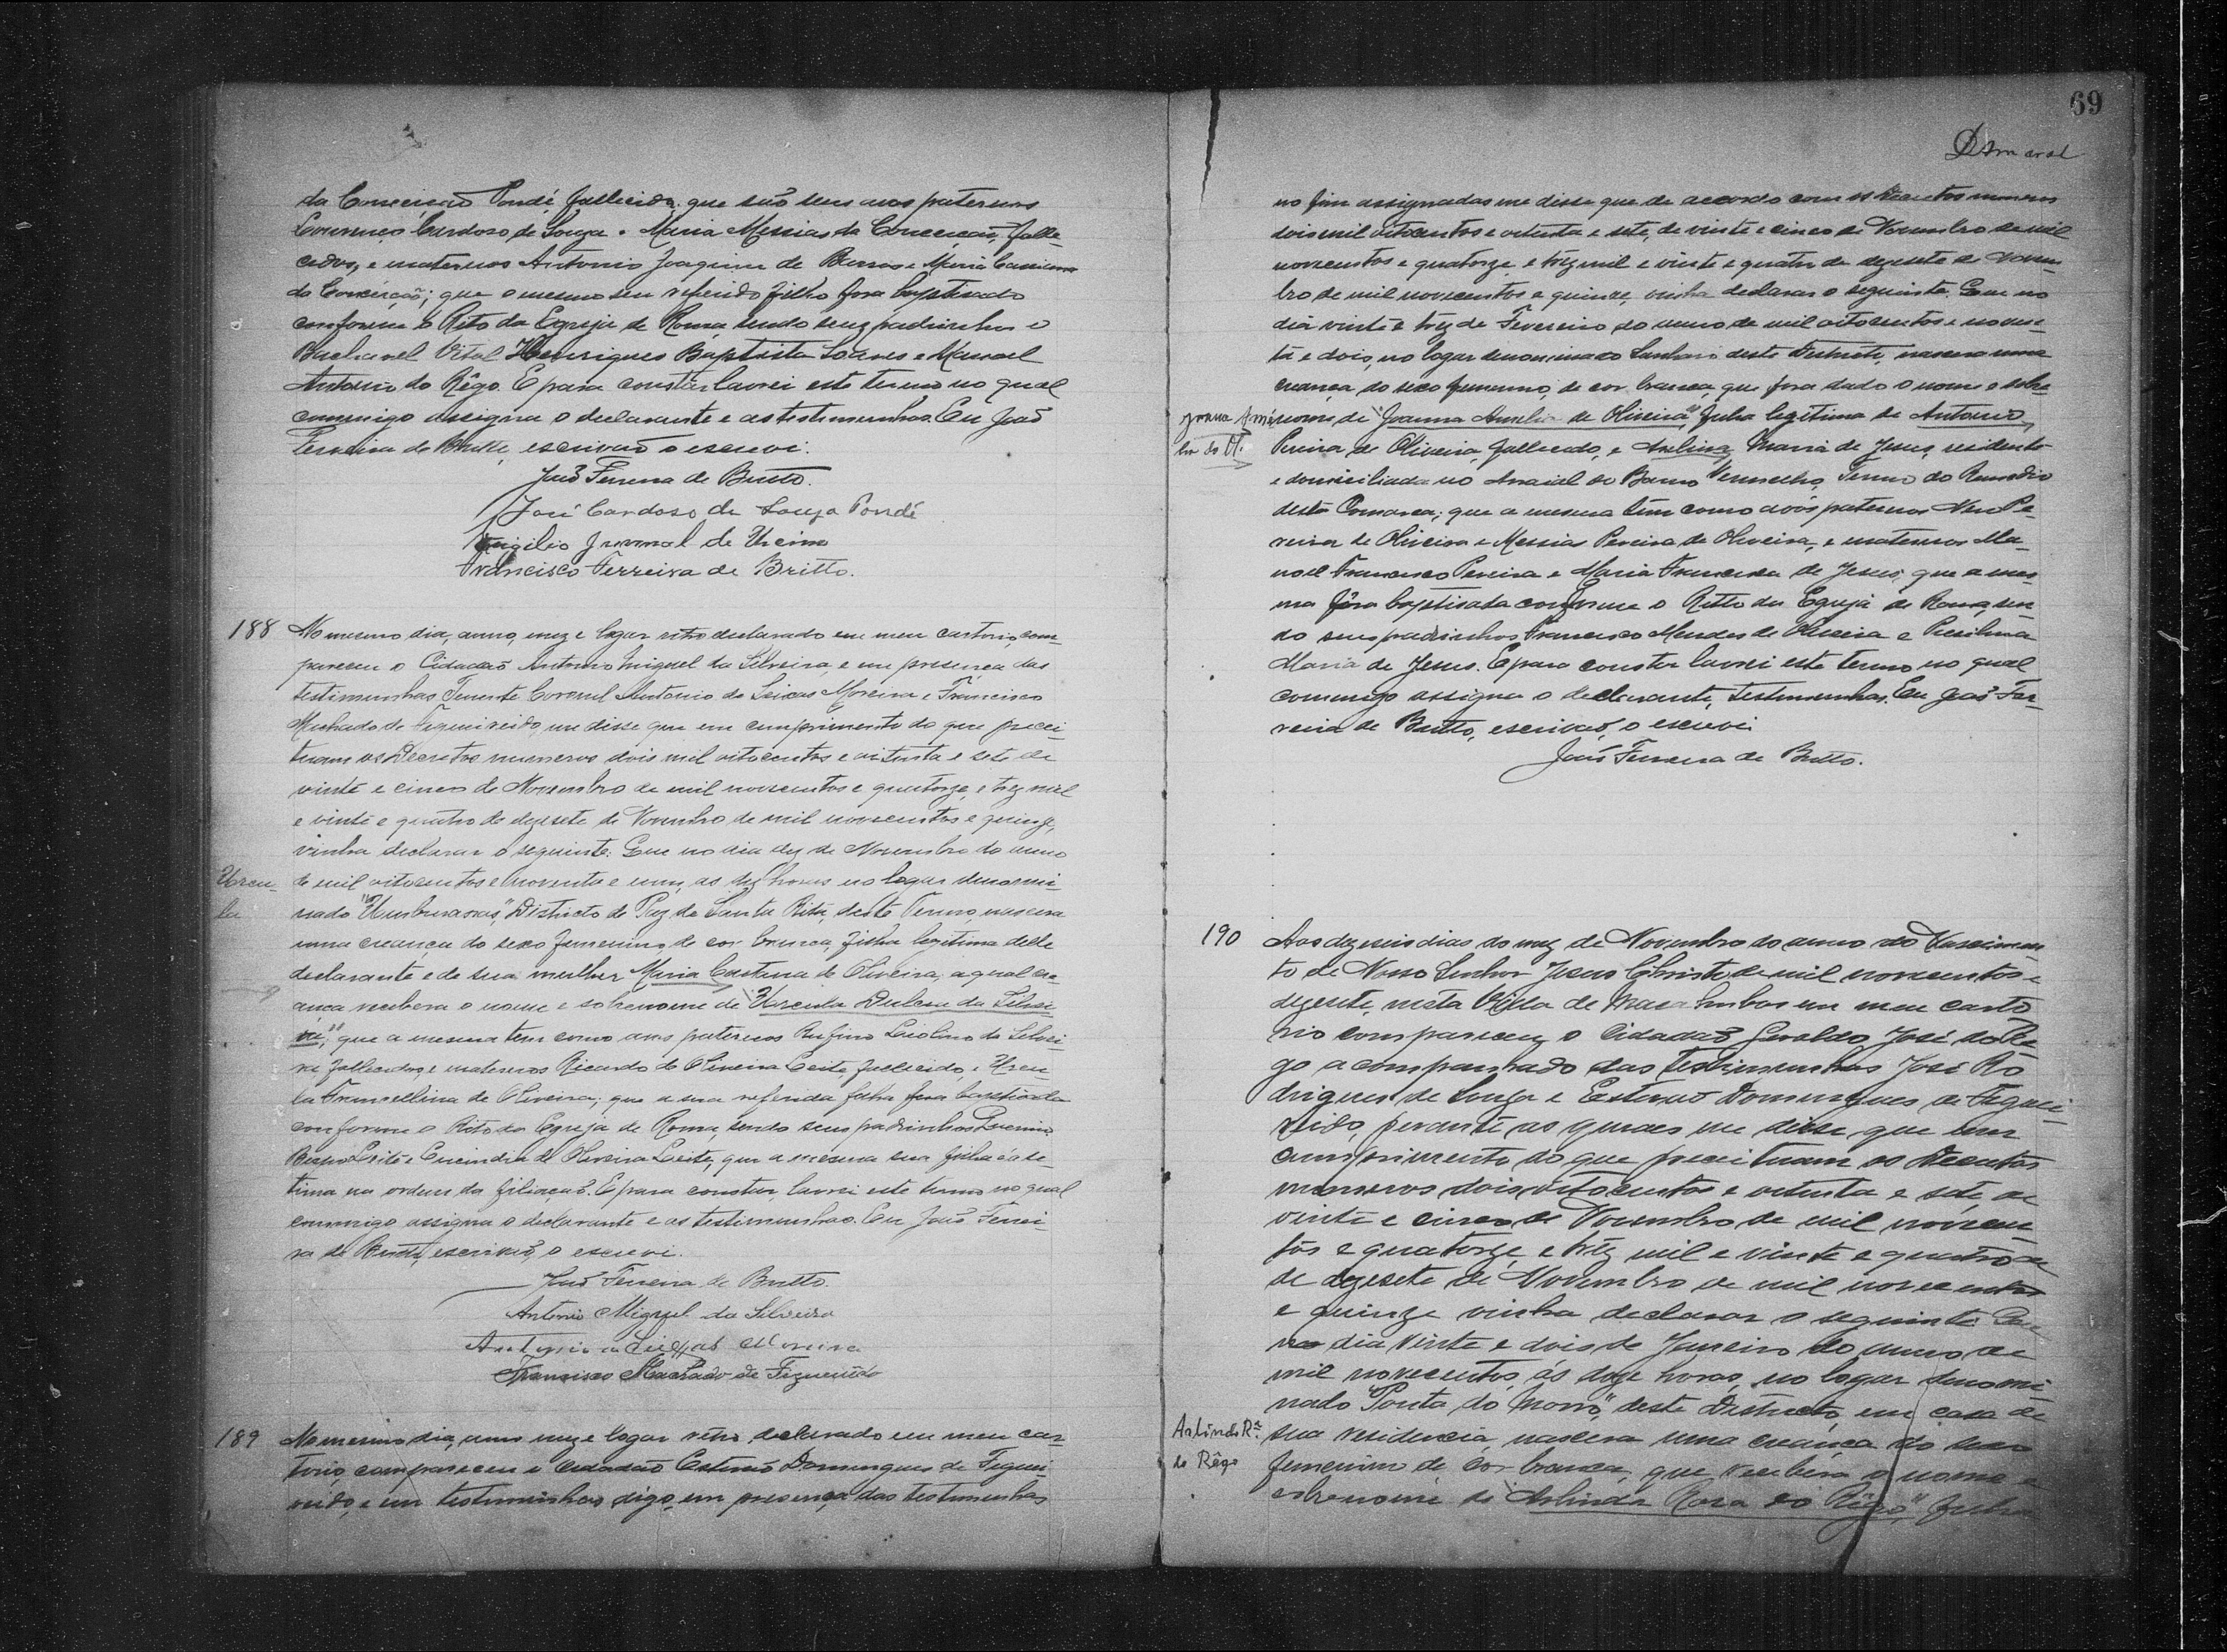 da Conceição Pondé, fallecida que são seus avos paternos
Lourenço Cardoso de Souza e Maria Messias da Conceição, falle-
cidos, e maternos Antonio Joaquim de Barros e Maria
da Conceição; que o mesmo seu referido filho fora baptisado
conforme o Rito da Egreja de Roma sendo seus padrinhos o
Bacharel Vital Henriques Baptista Soares e Manoel
Antonio do Rêgo. E para constar lavrei este termo no qual
commigo assigna o declarante e as testimunhas. Eu João
Ferreira de Britto, escrivão o escrevi.
João Ferreira de Britto.
José Cardoso de Souza Pondé
Virgilio Juvenal de
Francisco Ferreira de Britto.
188 No mesmo dia, anno, mez e logar retro declarado em meu cartorio, com-
pareceu o Cidadão Antonio Miguel da Silveira, e em presença das
testimunhas Tenente Coronel Antonio de Seixas Moreira e Francisco
Machado de Figueireido, me disse que em cumprimento do que precei-
tuam os Decretos numeros dois mil oitocentos e oitenta e sete de
vinte e cinco de Novembro de mil novecentos e quatorze, e trez mil
e vinte e quatro de dezesete de Novembro de mil novecentos e quinze,
vinha declarar o seguinte: Que no dia dez de Novembro do anno
Urcu- de mil oitocentos e noventa e um, as dez horas no logar denomi-
la nado "Umburanas," Districto de Paz de Santa Rita, deste Termo, nascera
uma creança do sexo femenino de cor branca, filha legitima delle
declarante e de sua mulher Maria Caetana de Oliveira, a qual cre-
ança recebera o nome e sobrenome de "Urculа Dulcea da Silvei-
ra," que a mesma tem como avos paternos Rufino Laolino da Silvei-
ra fallecidos, e maternos Ricardo de Oliveira Leite, fallecido, e Urcu-
la Francellina de Oliveira; que a sua referida filha fora baptisada
conforme o Rito da Egreja de Roma, sendo seus padrinhos
Leite e de Oliveira Leite, que a mesma sua filha é a se-
tima na ordem da filiação. E para constar, lavrei este termo no qual
commigo assigna o declarante e as testimunhas. Eu João Ferrei-
ra de Britto, escrivão, o escrevi.
João Ferreira de Britto.
Antonio Miguel da Silveira
Antonio de Seixas Moreira
Francisco Machado de Figueirêdo
189 No mesmo dia, anno mez e logar retro declarado em meu car-
torio, compareceu o Cidadão Estevão Domingues de Figuei-
reido, e em testimunhas digo, em presença das testimunhas
69
DAmaral
no fim assignadas me disse que de accordo com os Decretos numeros
dois mil oitocentos e oitenta e sete, de vinte e cinco de Novembro de mil
novecentos e quatorze, e trêz mil e vinte e quatro de dezesete de Novem-
bro de mil novecentos e quinze, vinha declarar o seguinte: Que no
dia vinte e trêz de Fevereiro do anno de mil oitocentos e noven-
ta e dois, no logar denominado Santhario deste Districto, nascera uma
creança do sexo femenino, de cor branca, que fora dado o nome e sobre-
Joana Amé- nome de "Joanna Amelia de Oliveira," filha legitima de Antonio
lia de Ol. Pereira de Oliveira, fallecido, e Avelina Maria de Jesus, residente
e domiciliada no Arraial do Barro Vermelho, Termo do Remedio
desta Comarca; que a mesma têm como avós paternos Pe-
reira de Oliveira e Messias Pereira de Oliveira, e maternos Ma-
noel Francisco Pereira e Maria Francisca de Jesus, que a mes-
ma fôra baptisada conforme o Ritto da Egreja de Roma, sen-
do seus padrinhos, Francisco Mendes de Oliveira e
Maria de Jesus. E para constar lavrei este termo no qual
commigo assigna o declarante, testimunhas. Eu João Fer-
reira de Britto, escrivão, o escrevi
João Ferreira de Britto.
190 Aos dezeseis dias do mez de Novembro do anno do Nascimen-
to de Nosso Senhor Jesus Christo de mil novecentos e
dezesete, nesta Villa de Macahubas em meu carto-
rio compareceu o Cidadão Geraldo José do Rê-
go acompanhado das testimunhas José Ro-
drigues de Souza e Estevão Domingues de Figuei-
reido, perante as quaes me disse que em
cumprimento do que preceituam os Decretos
numeros dois oitocentos e oitenta e sete, de
vinte e cinco de Novembro de mil novecen-
tos e quatorze, e trêz mil e vinte e quatro
de dezesete de Novembro de mil novecentos
e quinze vinha declarar o seguinte: Que
no dia vinte e dois de Janeiro do anno de
mil novecentos, ás doze horas, no logar denomi-
nado Ponta do Morro," deste Districto, em casa de
Arlinda Rª sua residencia, nascera uma creança do sexo
do Rêgo femenino de cor branca, que recebera o nome e
sobrenome de "Arlinda Rosa do Rêgo," filha